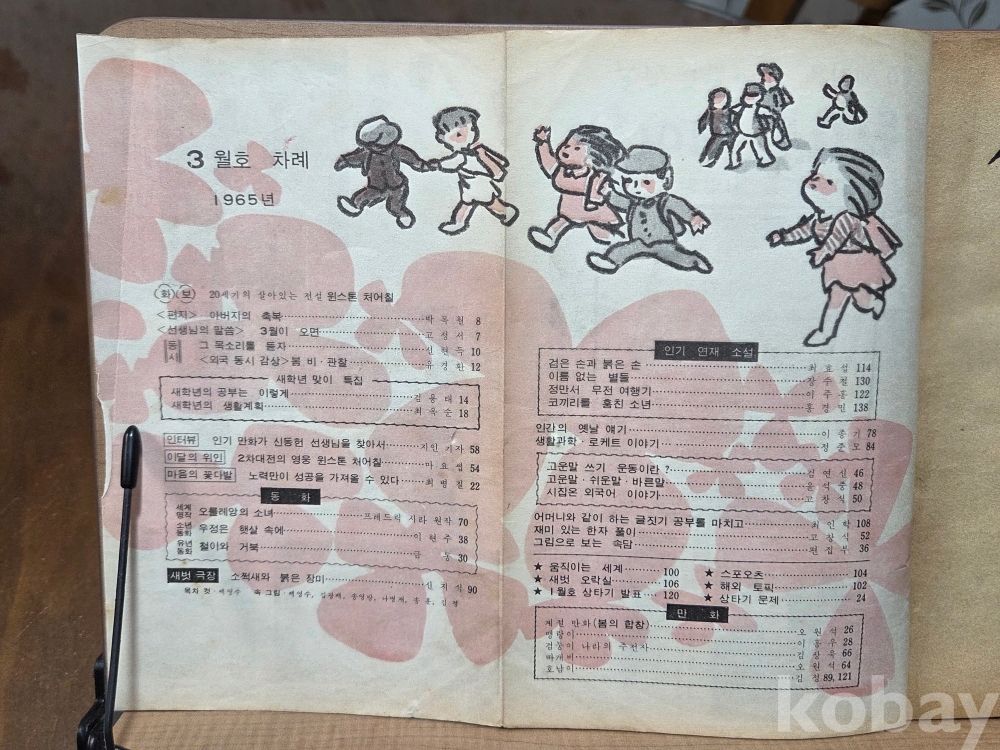 3 월호 차례
1965년
(화)(보) 20세기의 살아있는 전설 윈스톤 처어칠
<편지> 아버지의 축복 박목월 8
<선생님의 말씀> 3월이 오면 고정서 7
동시 그 목소리를 듣자 신현득 10
<외국 동시 감상> 봄 비·관찰 유경환 12
새학년 맞이 특집
새학년의 공부는 이렇게 김용대 14
새학년의 생활계획 최옥순 18
인터뷰 인기 만화가 신동헌 선생님을 찾아서 지인 기자 58
이달의 위인 2차대전의 영웅 윈스톤 처어칠 마요섭 54
마음의 꽃다발 노력만이 성공을 가져올 수 있다 최병칠 22
동 화
세계명작 오를레앙의 소녀 프레드릭 시라 원작 70
소년동화 우정은 햇살 속에 이현주 38
유년동화 철이와 거북 38 30
새벗 극장 소쩍새와 붉은 장미 신지식 90
목차 컷·백영수
인기 연재 소설
검은 손과 붉은 손 최요섭 114
이름 없는 별들 장수철 130
정만서 무전 여행기 이주홍 122
코끼리를 훔친 소년 홍경민 138
인간의 옛날 얘기 이종기 78
생활과학·로케트 이야기 정준모 84
고운말 쓰기 운동이란? 김연실 46
고운말·쉬운말·바른말 윤석중 48
시집온 외국어 이야기 고창식 50
어머니와 같이 하는 글짓기 공부를 마치고 최인학 108
재미 있는 한자 풀이 고창식 52
그림으로 보는 속담 편집부 36
★ 움직이는 세계 100
★ 새벗 오락실 106
★ 1월호 상타기 발표 120
★ 스포오츠 104
★ 해외 토픽 102
★ 상타기 문제 24
만 화
계절 만화(봄의 합창) 오원석 26
맹랑이 이흥우 28
검둥이 나라의 주전자 김상욱 66
바개비 오원식 64
호남이 김정 89, 121
kobay